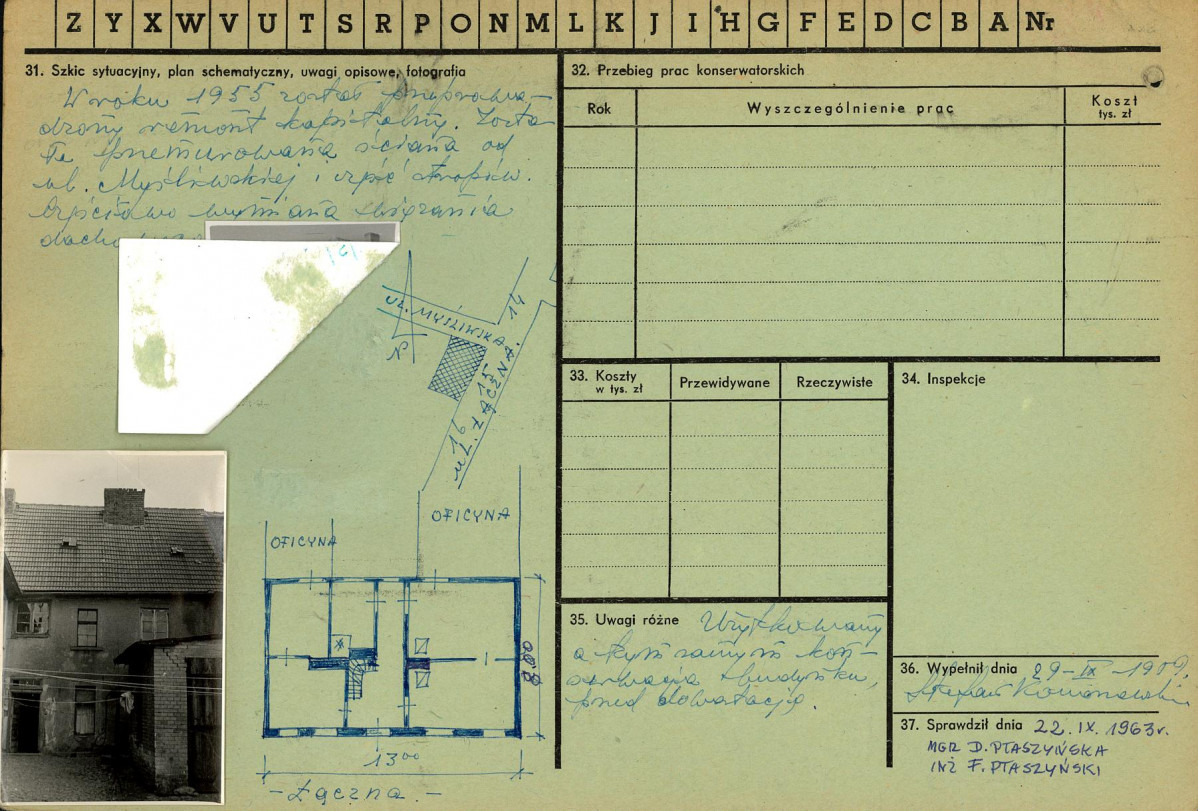 Z Y X W V U T S R P O N M L K J I H G F E D C B A Nr
31. Szkic sytuacyjny, plan schematyczny, uwagi opisowe, fotografia
W roku 1955 został przeprowa-
dzony remont kapitalny. Zosta-
ła przemurowana ściana od
ul. Myśliwskiej i część stropów.
Częściowo wymiana wiązania
UL. MYŚLIWSKA
14
N
15
16
UL. ŁĄCZNA.
OFICYNA
OFICYNA
8 00
13 00
- Łączna. -
32. Przebieg prac konserwatorskich
Rok
Wyszczególnienie prac
Koszt
tys. zł
33. Koszty
w tys. zł
Przewidywane
Rzeczywiste
34. Inspekcje
35. Uwagi różne
Użytkowany
a tym samym kon-
serwacja budynku,
przed dewastacją.
36. Wypełnił dnia 29-IX-1959.
Stefan
37. Sprawdził dnia 22.IX.1963r.
MGR D. PTASZYŃSKA
INŻ F. PTASZYŃSKI